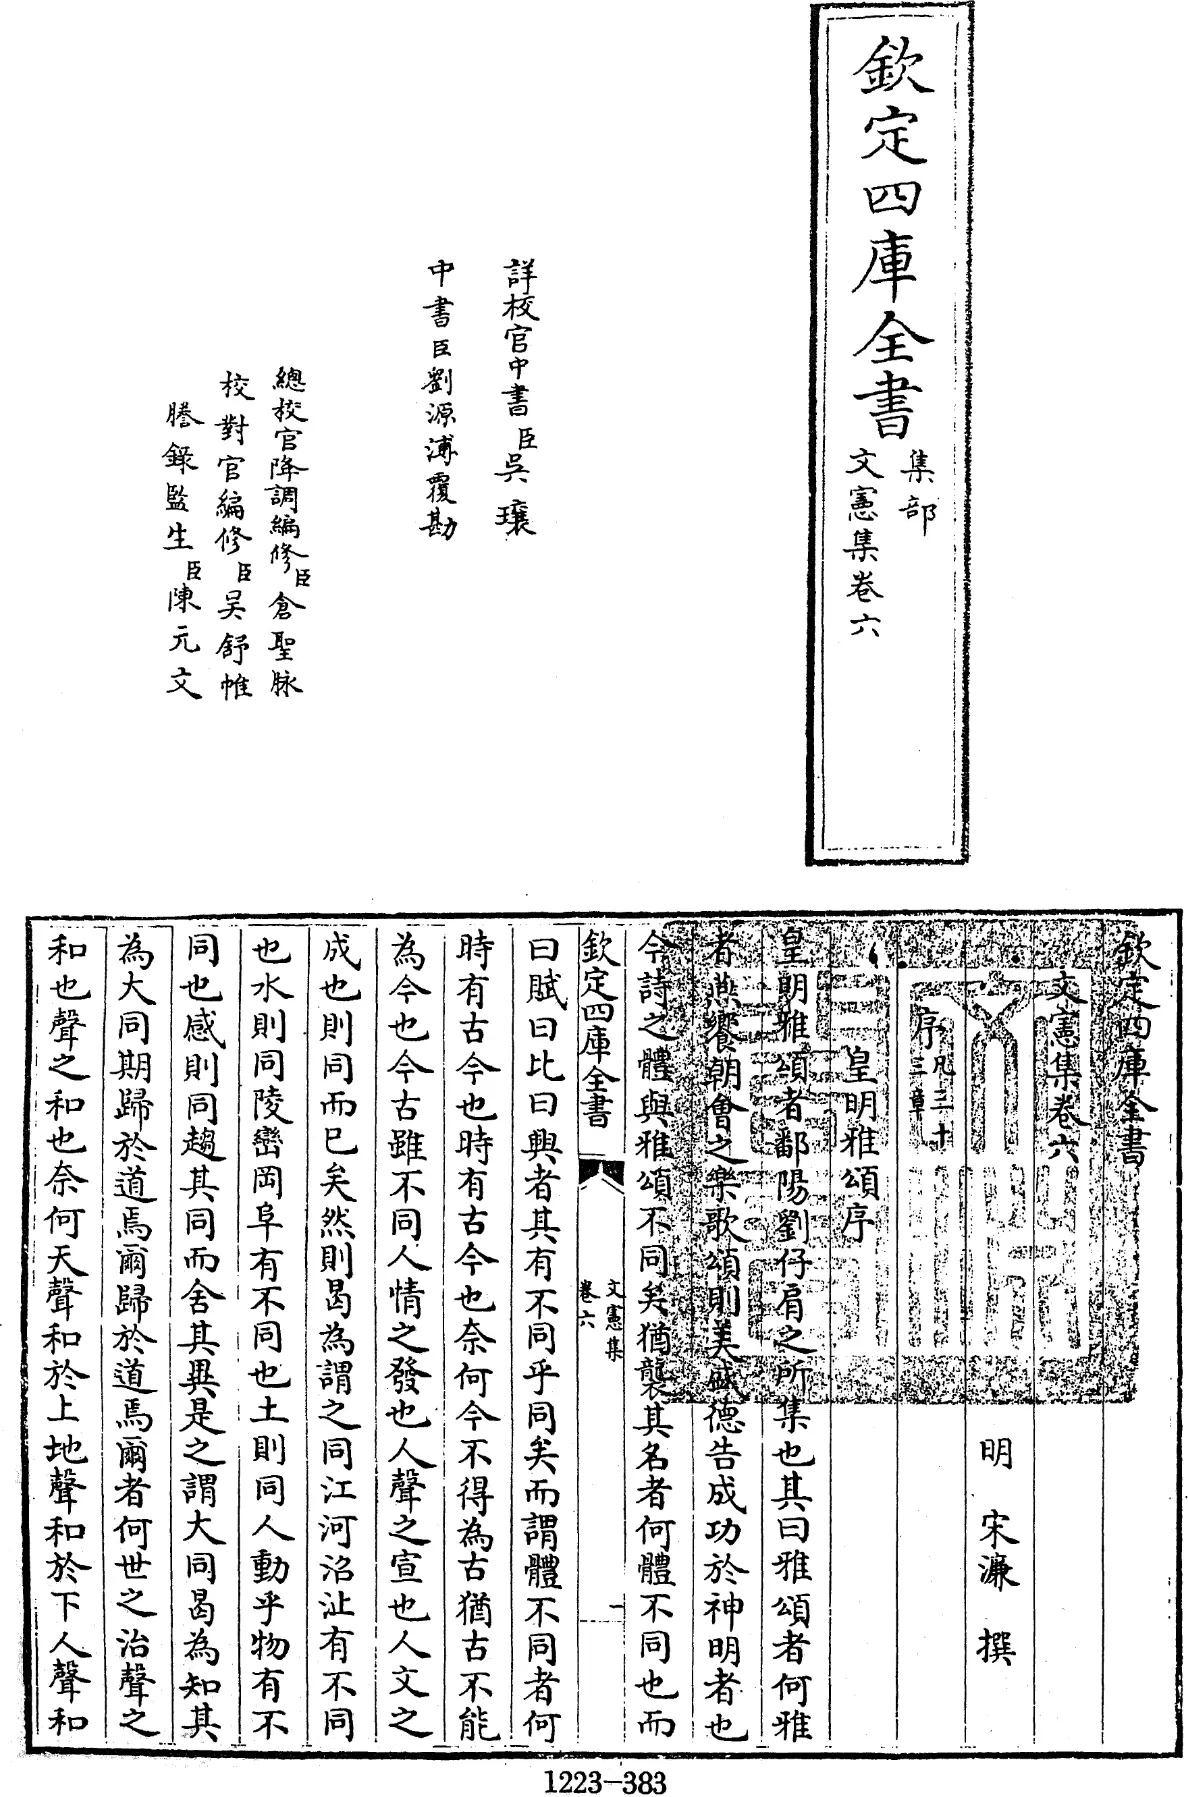 欽定四庫全書
集部
文憲集卷六
詳校官中書臣吳瓖
中書臣劉源溥覆勘
總校官降調編修臣倉聖脉
校對官編修臣吴舒帷
謄錄監生臣陳元文
欽定四庫全書
文憲集卷六
明 宋濂 撰
序凡三十三章
皇明雅頌序
皇明雅頌者鄱陽劉仔肩之所集也其曰雅頌者何雅
者燕饗朝會之樂歌頌則美盛德告成功於神明者也
今詩之體與雅頌不同矣猶襲其名者何體不同也而
欽定四庫全書
文憲集
卷六
一
曰賦曰比曰興者其有不同乎同矣而謂體不同者何
時有古今也時有古今也奈何今不得為古猶古不能
為今也今古雖不同人情之發也人聲之宣也人文之
成也則同而已矣然則曷為謂之同江河沼沚有不同
也水則同陵巒岡阜有不同也土則同人動乎物有不
同也感則同趨其同而舍其異是之謂大同曷為知其
為大同期歸於道焉爾歸於道焉爾者何世之治聲之
和也聲之和也奈何天聲和於上地聲和於下人聲和
1223—383